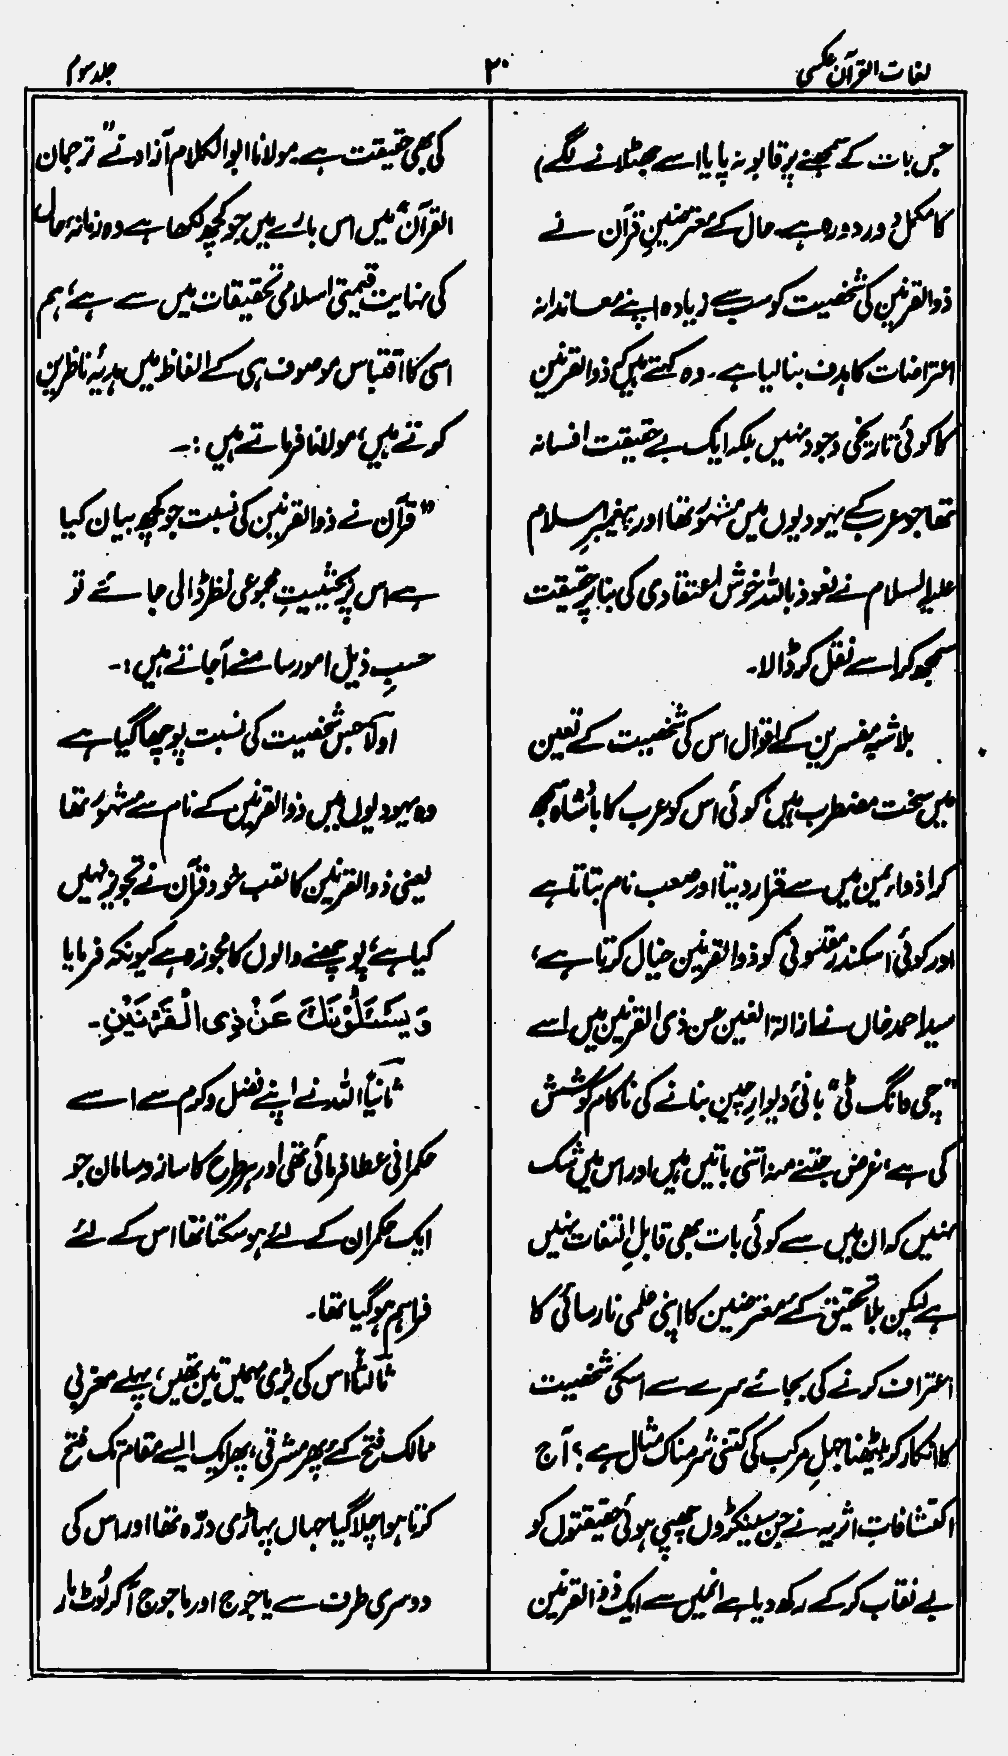 لغات القرآن عکسی
۲۰
جلد سوم
جس بات کے سمجھنے پر قابو نہ پایا اسے جھٹلانے لگے)
کا مکمل دور دورہ ہے۔ حال کے معترضینِ قرآن نے
ذوالقرنین کی شخصیت کو سب سے زیادہ اپنے معاندانہ
اعتراضات کا ہدف بنا لیا ہے۔ وہ کہتے ہیں کہ ذوالقرنین
کا کوئی تاریخی وجود نہیں بلکہ ایک بے حقیقت افسانہ
تھا جو عرب کے یہودیوں میں مشہور تھا اور پیغمبرِ اسلام
علیہ السلام نے نعوذ باللہ خوش اعتقادی کی بنا پر حقیقت
سمجھ کر اسے نقل کر ڈالا۔
بلاشبہ مفسرین کے اقوال اس کی شخصیت کے تعین
میں سخت مضطرب ہیں، کوئی اس کو عرب کا بادشاہ سمجھ
کر اذواءِ یمن میں سے قرار دیتا اور صعب نام بتاتا ہے
اور کوئی اسکندر مقدونی کو ذوالقرنین خیال کرتا ہے،
سید احمد خاں نے ازالۃ الغین عن ذی القرنین میں اسے
"چی وانگ ٹی" بانیٔ دیوارِ چین بنانے کی ناکام کوشش
کی ہے، غرض جتنے منہ اتنی باتیں ہیں اور اس میں شک
نہیں کہ ان میں سے کوئی بات بھی قابلِ التفات نہیں
ہے لیکن بلا تحقیق کئے معترضین کا اپنی علمی نارسائی کا
اعتراف کرنے کی بجائے سرے سے اسکی شخصیت
کا انکار کر بیٹھنا جہلِ مرکب کی کتنی شرمناک مثال ہے؟ آج
اکتشافاتِ اثریہ نے جن سینکڑوں چھپی ہوئی حقیقتوں کو
بے نقاب کر کے رکھ دیا ہے انہیں سے ایک ذوالقرنین
کی بھی حقیقت ہے۔ مولانا ابوالکلام آزاد نے "ترجمان
القرآن" میں اس بارے میں جو کچھ لکھا ہے وہ زمانۂ حال
کی نہایت قیمتی اسلامی تحقیقات میں سے ہے، ہم
اسی کا اقتباس موصوف ہی کے الفاظ میں ہدیۂ ناظرین
کرتے ہیں، مولانا فرماتے ہیں :۔
"قرآن نے ذوالقرنین کی نسبت جو کچھ بیان کیا
ہے اس پر بحیثیتِ مجموعی نظر ڈالی جائے تو
حسبِ ذیل امور سامنے آجاتے ہیں:۔
اولاً جس شخصیت کی نسبت پوچھا گیا ہے
وہ یہودیوں میں ذوالقرنین کے نام سے مشہور تھا
یعنی ذوالقرنین کا لقب خود قرآن نے تجویز نہیں
کیا ہے، پوچھنے والوں کا مجوزہ ہے کیونکہ فرمایا
وَیَسْئَلُوْنَکَ عَنْ ذِی الْقَرْنَیْنِ۔
ثانیاً اللہ نے اپنے فضل و کرم سے اسے
حکمرانی عطا فرمائی تھی اور ہر طرح کا ساز و سامان جو
ایک حکمران کے لئے ہو سکتا تھا اس کے لئے
فراہم ہو گیا تھا۔
ثالثاً اس کی بڑی مہمیں تین تھیں، پہلے مغربی
ممالک فتح کئے پھر مشرقی، پھر ایک ایسے مقام تک فتح
کرتا ہوا چلا گیا جہاں پہاڑی درّہ تھا اور اس کی
دوسری طرف سے یاجوج اور ماجوج آ کر لوٹ مار